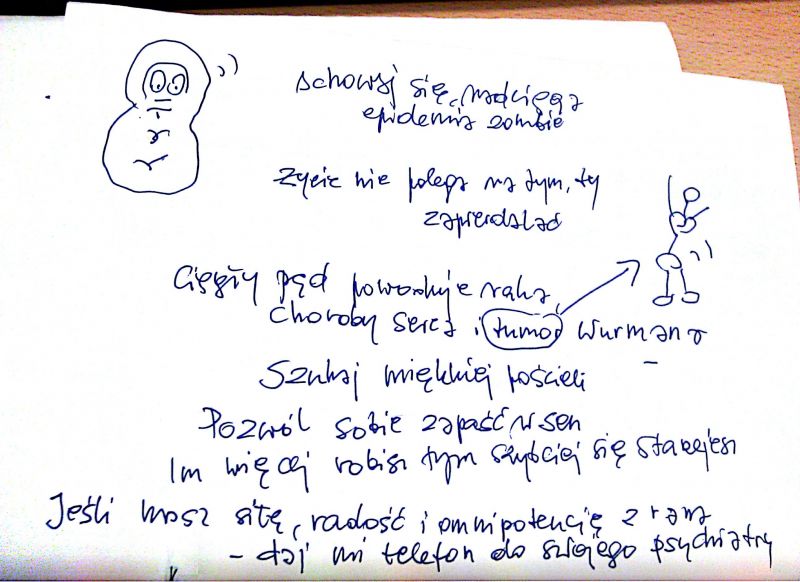 schowaj się, nadciąga
epidemia zombie
życie nie polega na tym, by
zapierdalać
ciągły pęd powoduje raka,
choroby serca i tumor Wurmana
Szukaj miękkiej pościeli
Pozwól sobie zapaść w sen
Im więcej robisz tym szybciej się starzejesz
Jeśli masz siłę, radość i omnipotencję z rana
- daj mi telefon do swojego psychiatry